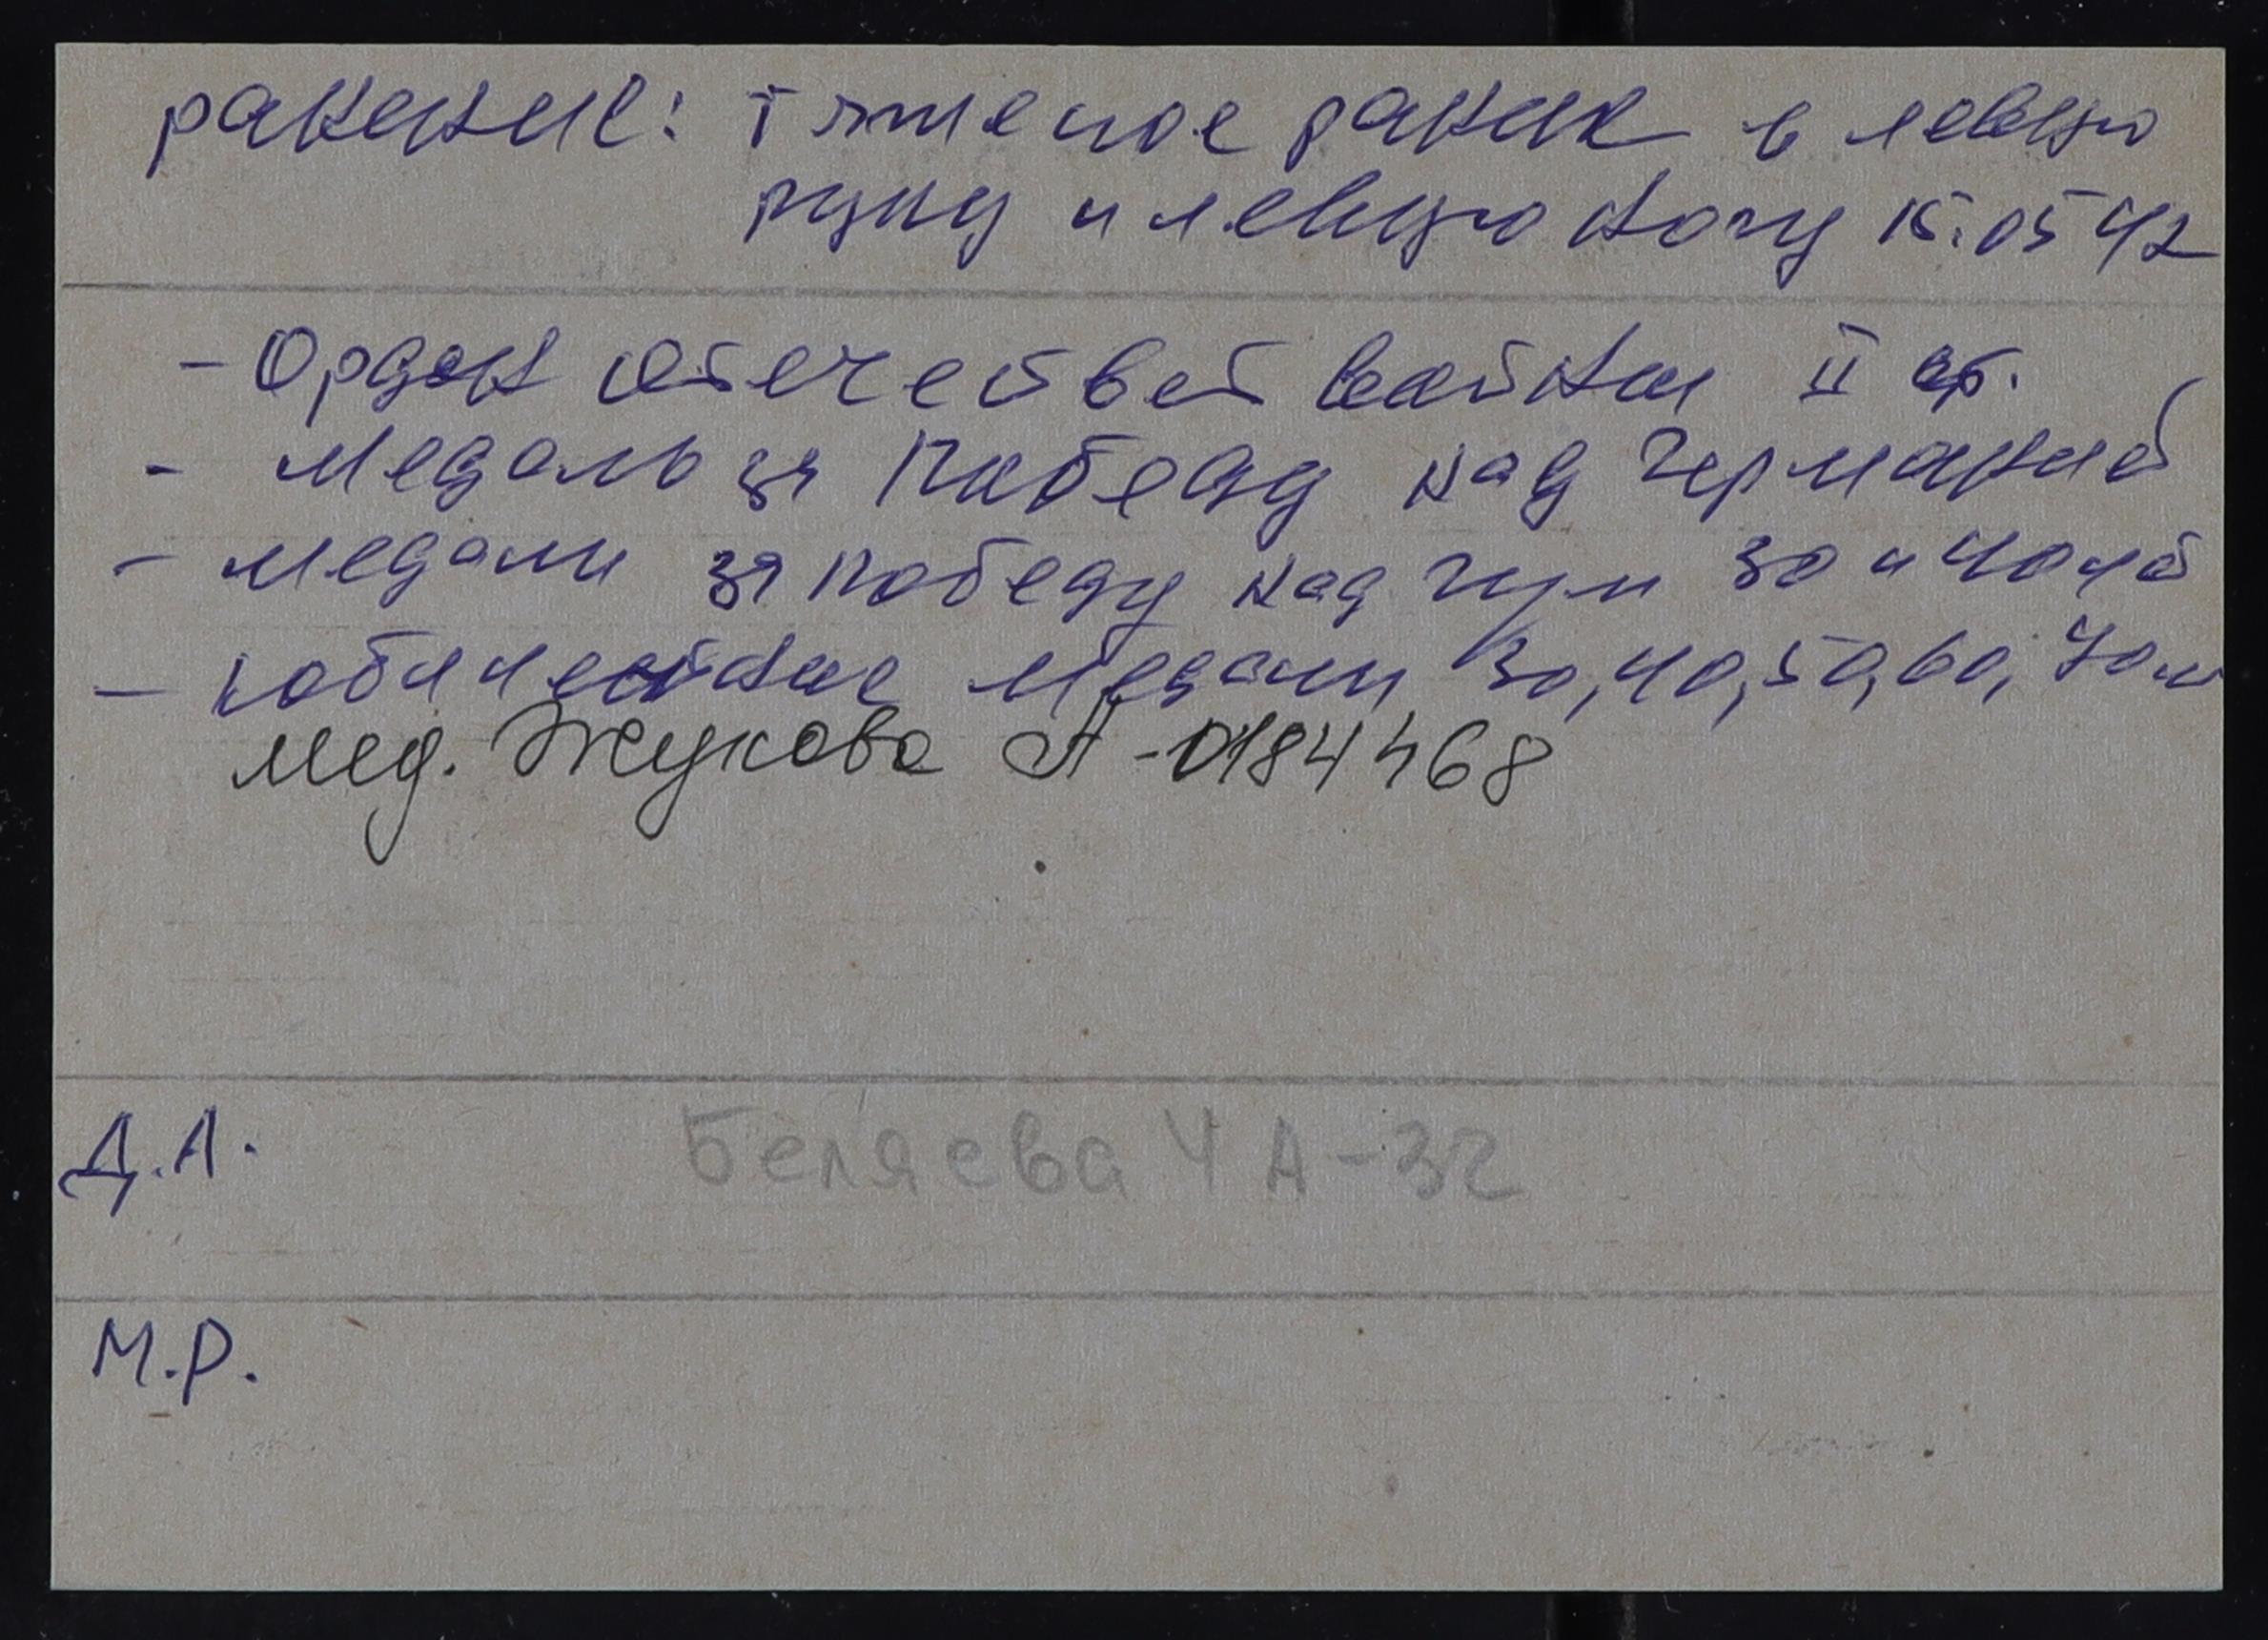 ранение: тяжелое ранен в левую
руку и левую ногу 15.05 42
- Орден Отечествет войны II ст.
- Медаль за Победу над Германией
- медали за победу над гер 30 и 40 лет
- юбилейные медали 30, 40, 50, 60, 70 л
мед. Жукова А - 0184468
Д.А.
Беляева 4 А-32
М.Р.